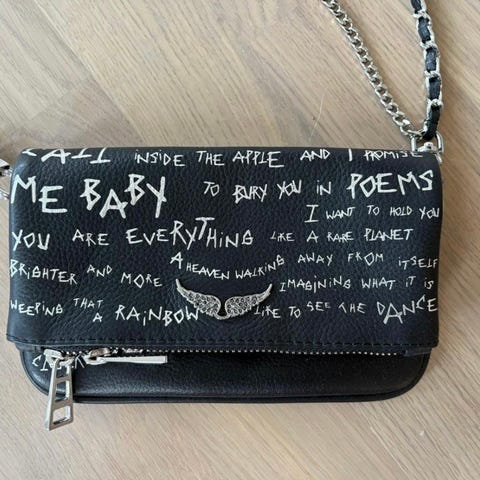 INSIDE THE APPLE AND I PROMISE
ME BABY TO BURY YOU IN POEMS
I WANT TO HOLD YOU
YOU ARE EVERYTHING LIKE A RARE PLANET
A HEAVEN WALKING AWAY FROM ITSELF
BRIGHTER AND MORE IMAGINING WHAT IT IS
WEEPING THAT A RAINBOW LIKE TO SEE THE DANCE